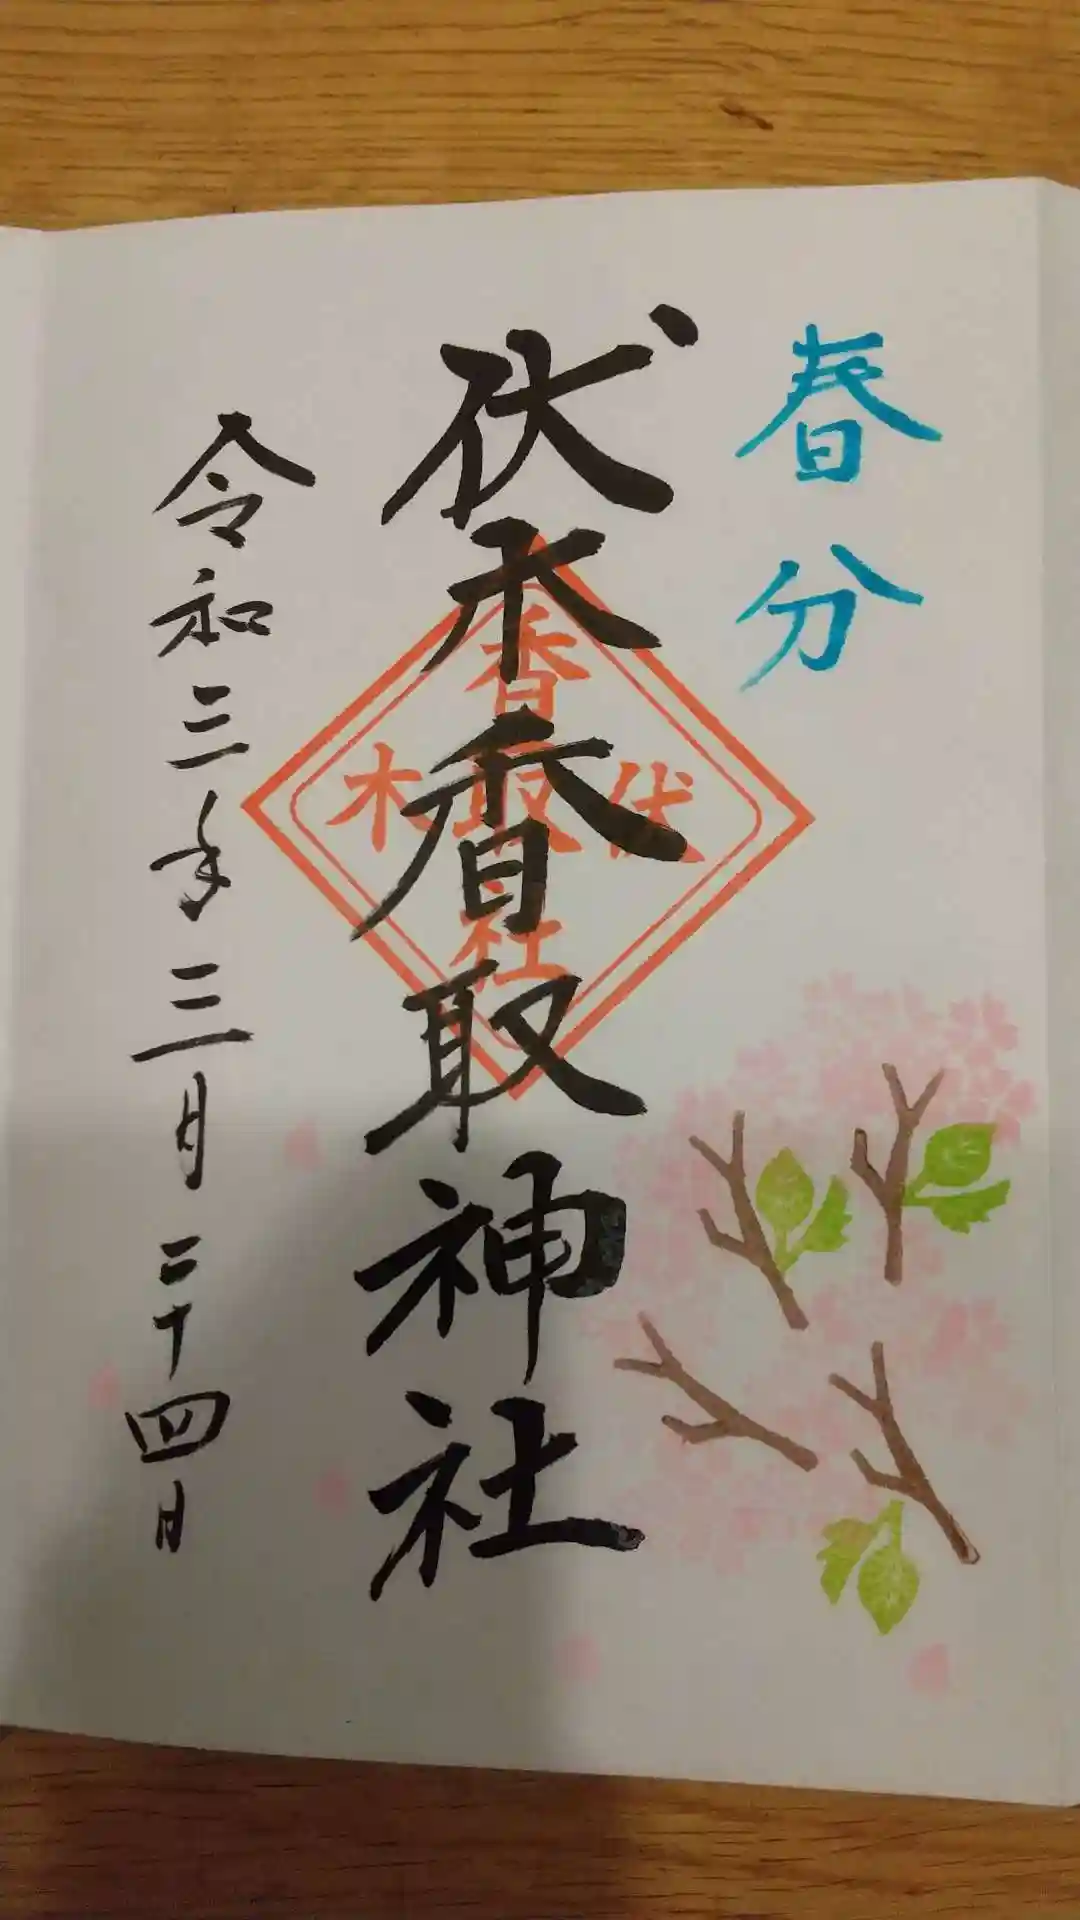 春分
伏木香取神社
伏木
香取社
令和三年三月二十四日